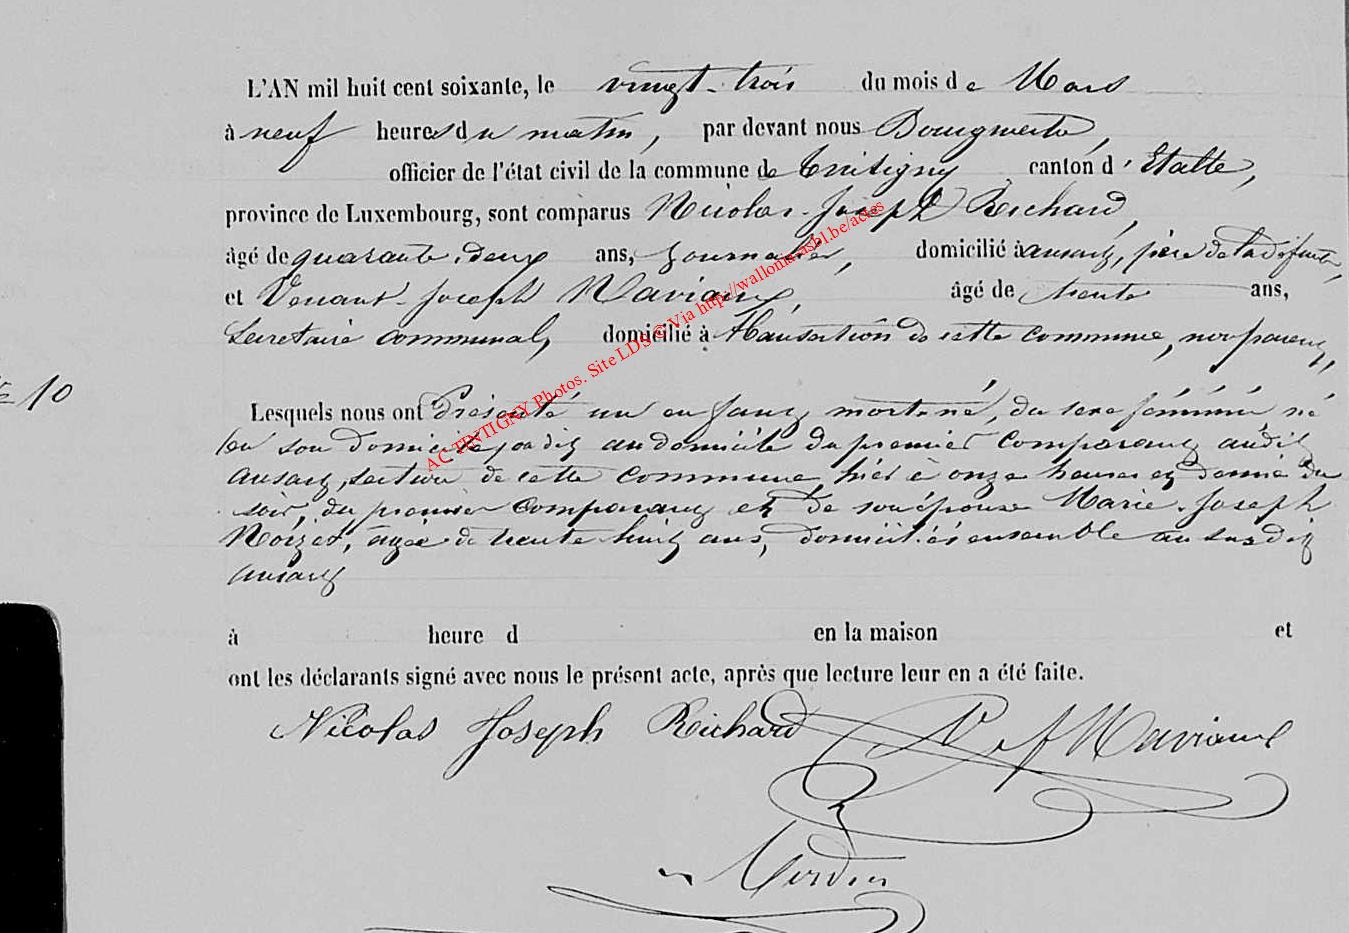 L'AN mil huit cent soixante, le vingt-trois du mois de Mars
à neuf heures du matin, par devant nous Bourgmestre,
officier de l'état civil de la commune de Tintigny canton d'Etalle,
province de Luxembourg, sont comparus Nicolas-Joseph Richard,
âgé de quarante-deux ans, journalier, domicilié à ansart, père de la défunte,
et Venant-Joseph Maviaux, âgé de trente ans,
Secrétaire communal, domicilié à hansart de cette commune, non parent,
N° 10
Lesquels nous ont présenté un enfant mort né, du sexe féminin né
en son domicile au domicile du premier comparant audit
ansart, section de cette commune, hier à onze heures et demie du
soir, du premier comparant et de son épouse Marie-Joseph
Noizet, agée de trente huit ans, domiciliés ensemble au susdit
ansart
à heure d en la maison et
ont les déclarants signé avec nous le présent acte, après que lecture leur en a été faite.
Nicolas Joseph Richard V J Maviaux
AC TINTIGNY Photos. Site LDS © Via http://wallonia-asbl.be/actes